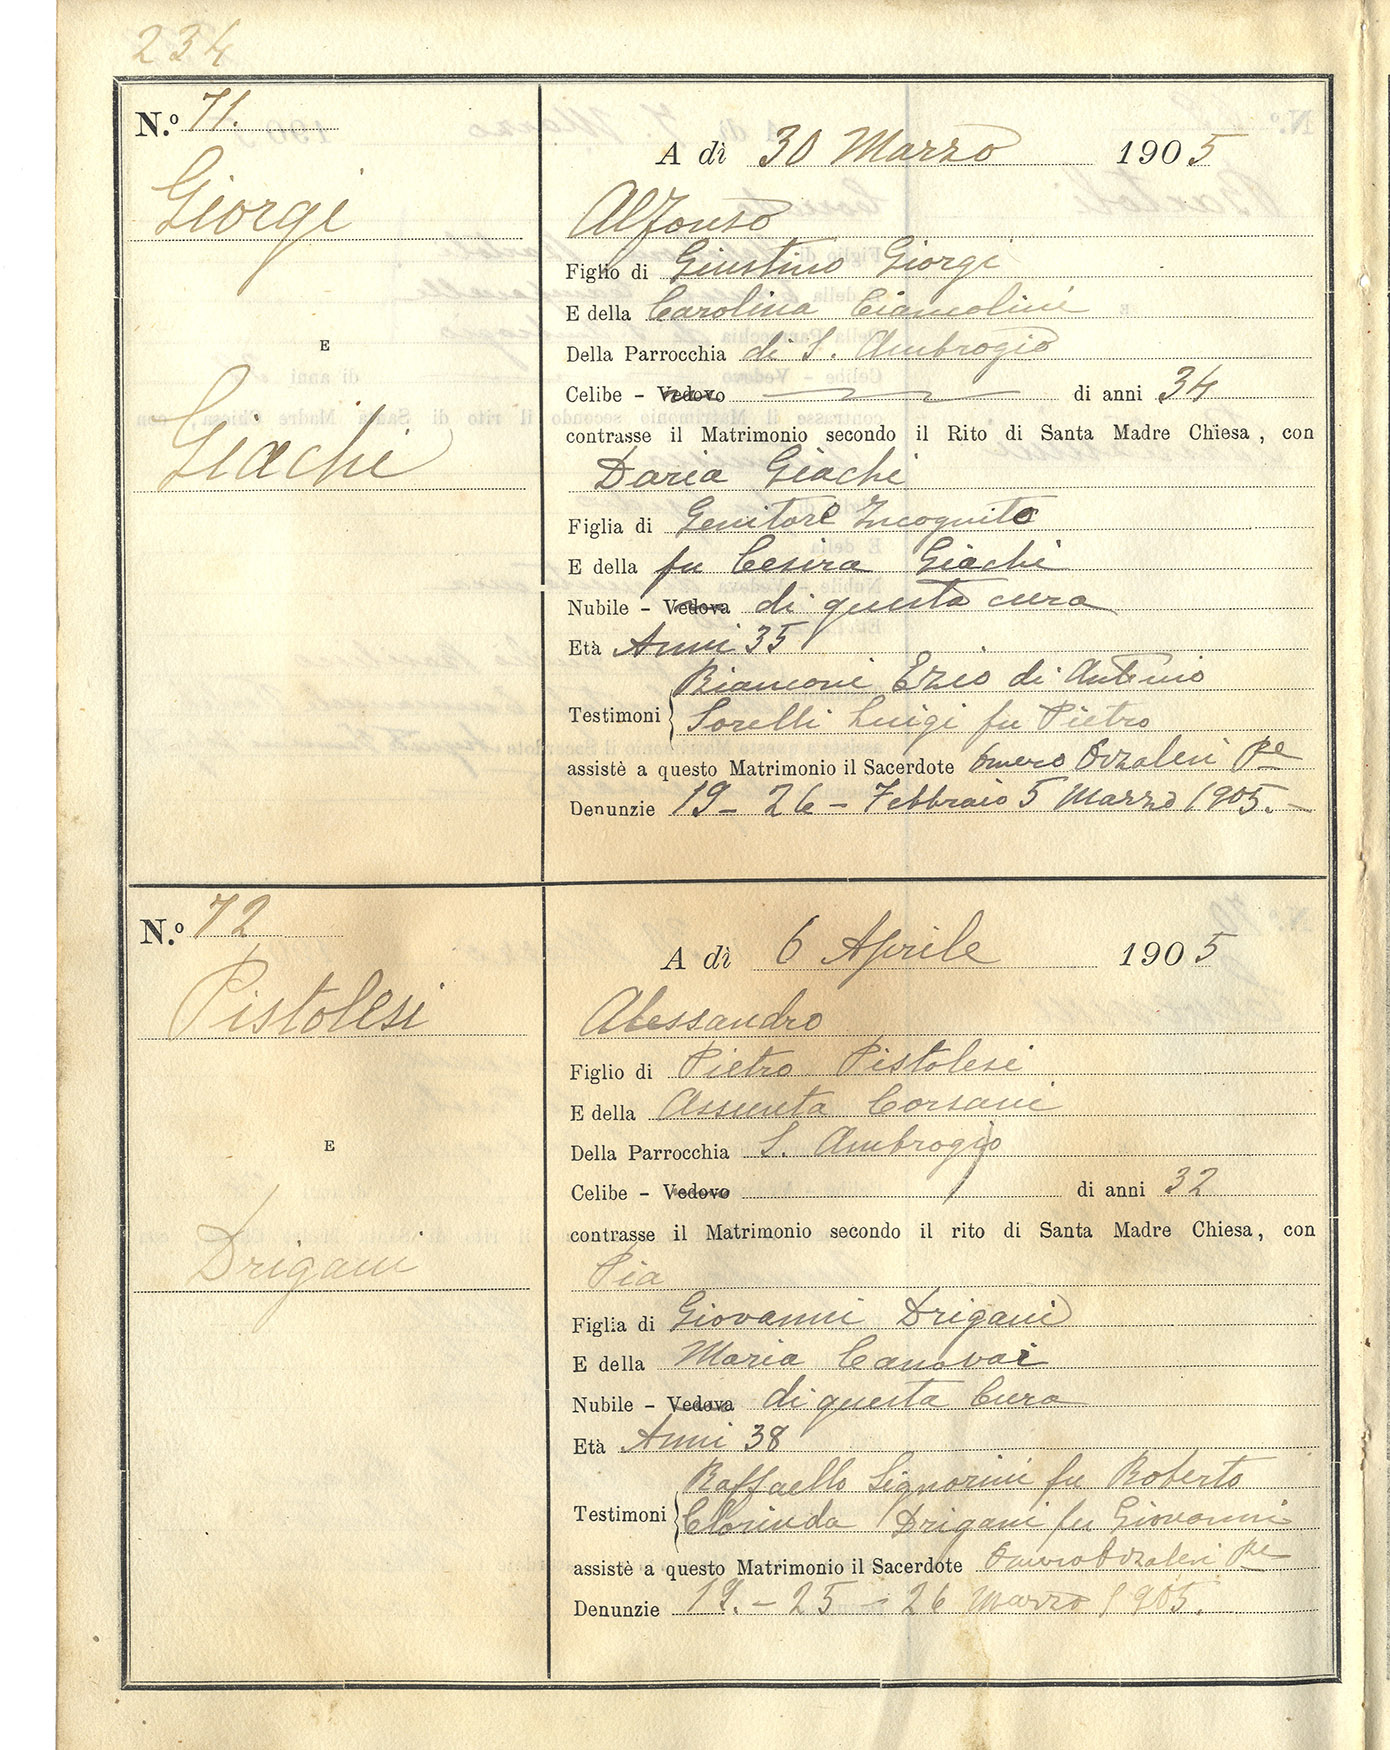 234
N.º 71.
Giorgi
E
Giachi
A dì 30 Marzo 1905
Alfonso
Figlio di Giustino Giorgi
E della Carolina Ciancolini
Della Parrocchia di S. Ambrogio
Celibe - Vedovo di anni 34
contrasse il Matrimonio secondo il Rito di Santa Madre Chiesa, con
Daria Giachi
Figlia di Genitore Incognito
E della fu Cesira Giachi
Nubile - Vedova di questa cura
Età Anni 35
Bianconi Ezio di Antonio
Testimoni { Sorelli Luigi fu Pietro
assistè a questo Matrimonio il Sacerdote Omero Orzalesi Pe
Denunzie 19 - 26 - Febbraio 5 Marzo 1905. -
N.º 72
Pistolesi
E
Drigani
A dì 6 Aprile 1905
Alessandro
Figlio di Pietro Pistolesi
E della Assunta Corsani
Della Parrocchia S. Ambrogio
Celibe - Vedovo di anni 32
contrasse il Matrimonio secondo il rito di Santa Madre Chiesa, con
Pia
Figlia di Giovanni Drigani
E della Maria Canovai
Nubile - Vedova di questa Cura
Età Anni 38
Raffaello Signorini fu Roberto
Testimoni { Clorinda Drigani fu Giovanni
assistè a questo Matrimonio il Sacerdote Omero Orzalesi Pe
Denunzie 19. - 25 - 26 Marzo 1905.